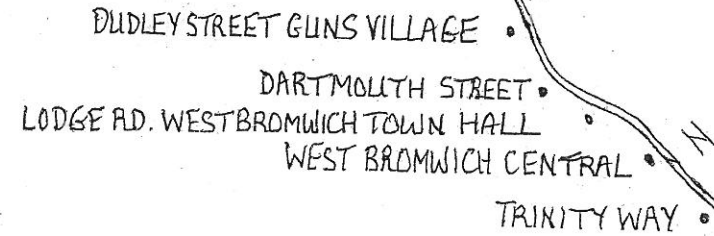 DUDLEY STREET GUNS VILLAGE
DARTMOUTH STREET
LODGE RD. WEST BROMWICH TOWN HALL
WEST BROMWICH CENTRAL
N
TRINITY WAY